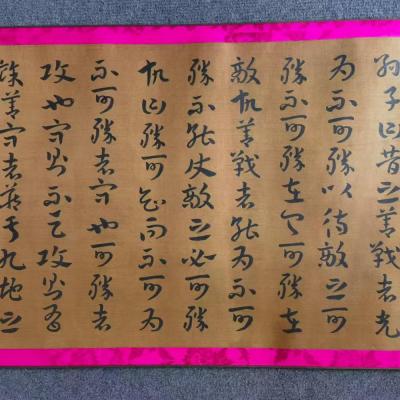 孫子曰昔之善戰者先
為不可勝以待敵之可
勝不可勝在己可勝在
敵故善戰者能為不可
勝不能使敵之必可勝
故曰勝可知而不可為
不可勝者守也可勝者
攻也守則不足攻則有
餘善守者藏於九地之